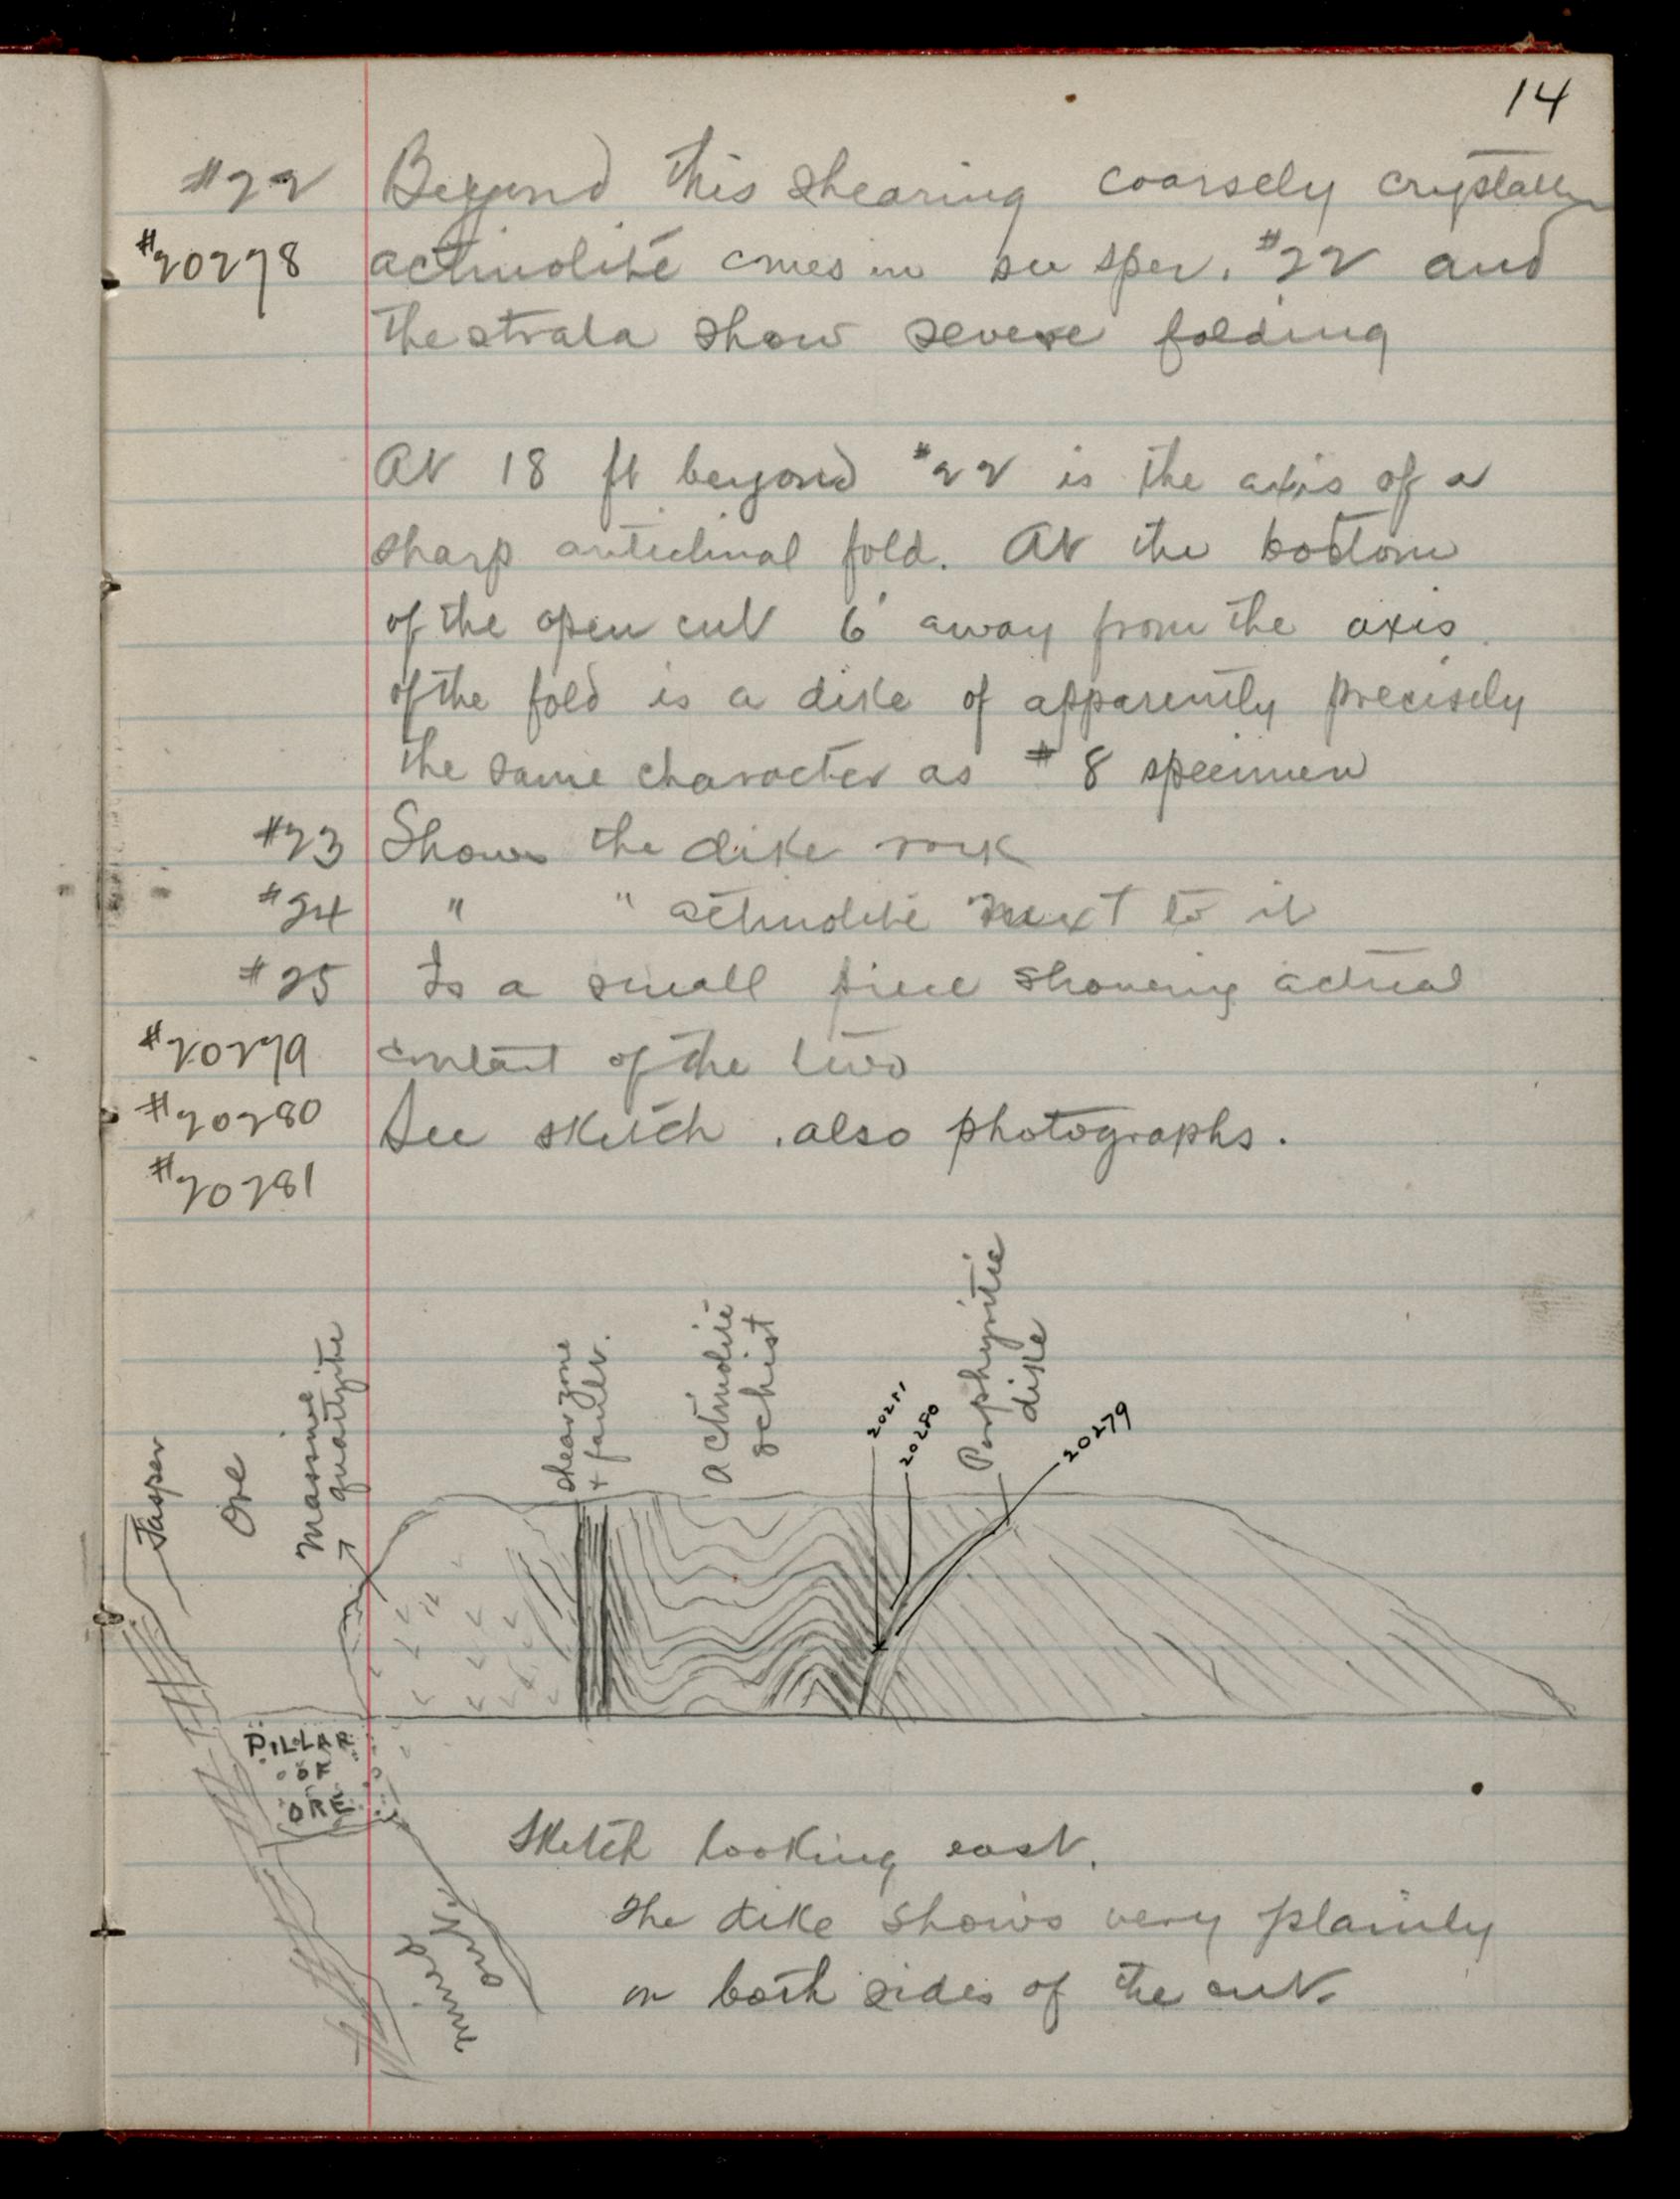 14
#22 Beyond this shearing coarsely crystalline
#20278 actinolite comes in see spec. #22 and
the strata show severe folding
At 18 ft beyond #22 is the axis of a
sharp anticlinal fold. At the bottom
of the open cut 6' away from the axis
of the fold is a dike of apparently precisely
the same character as #8 specimen
#23 Shows the dike rock
#24 " " actinolite next to it
#25 Is a small piece showing actual
#20279 contact of the two
#20280 See sketch, also photographs.
#20281
Jasper
Ore
Massive
quartzite
shear zone
+ fault.
Actinolite
schist
20281
20280
Porphyritic
dike
20279
PILLAR
OF
ORE
mined
out.
Sketch looking east.
The dike shows very plainly
on both sides of the cut.